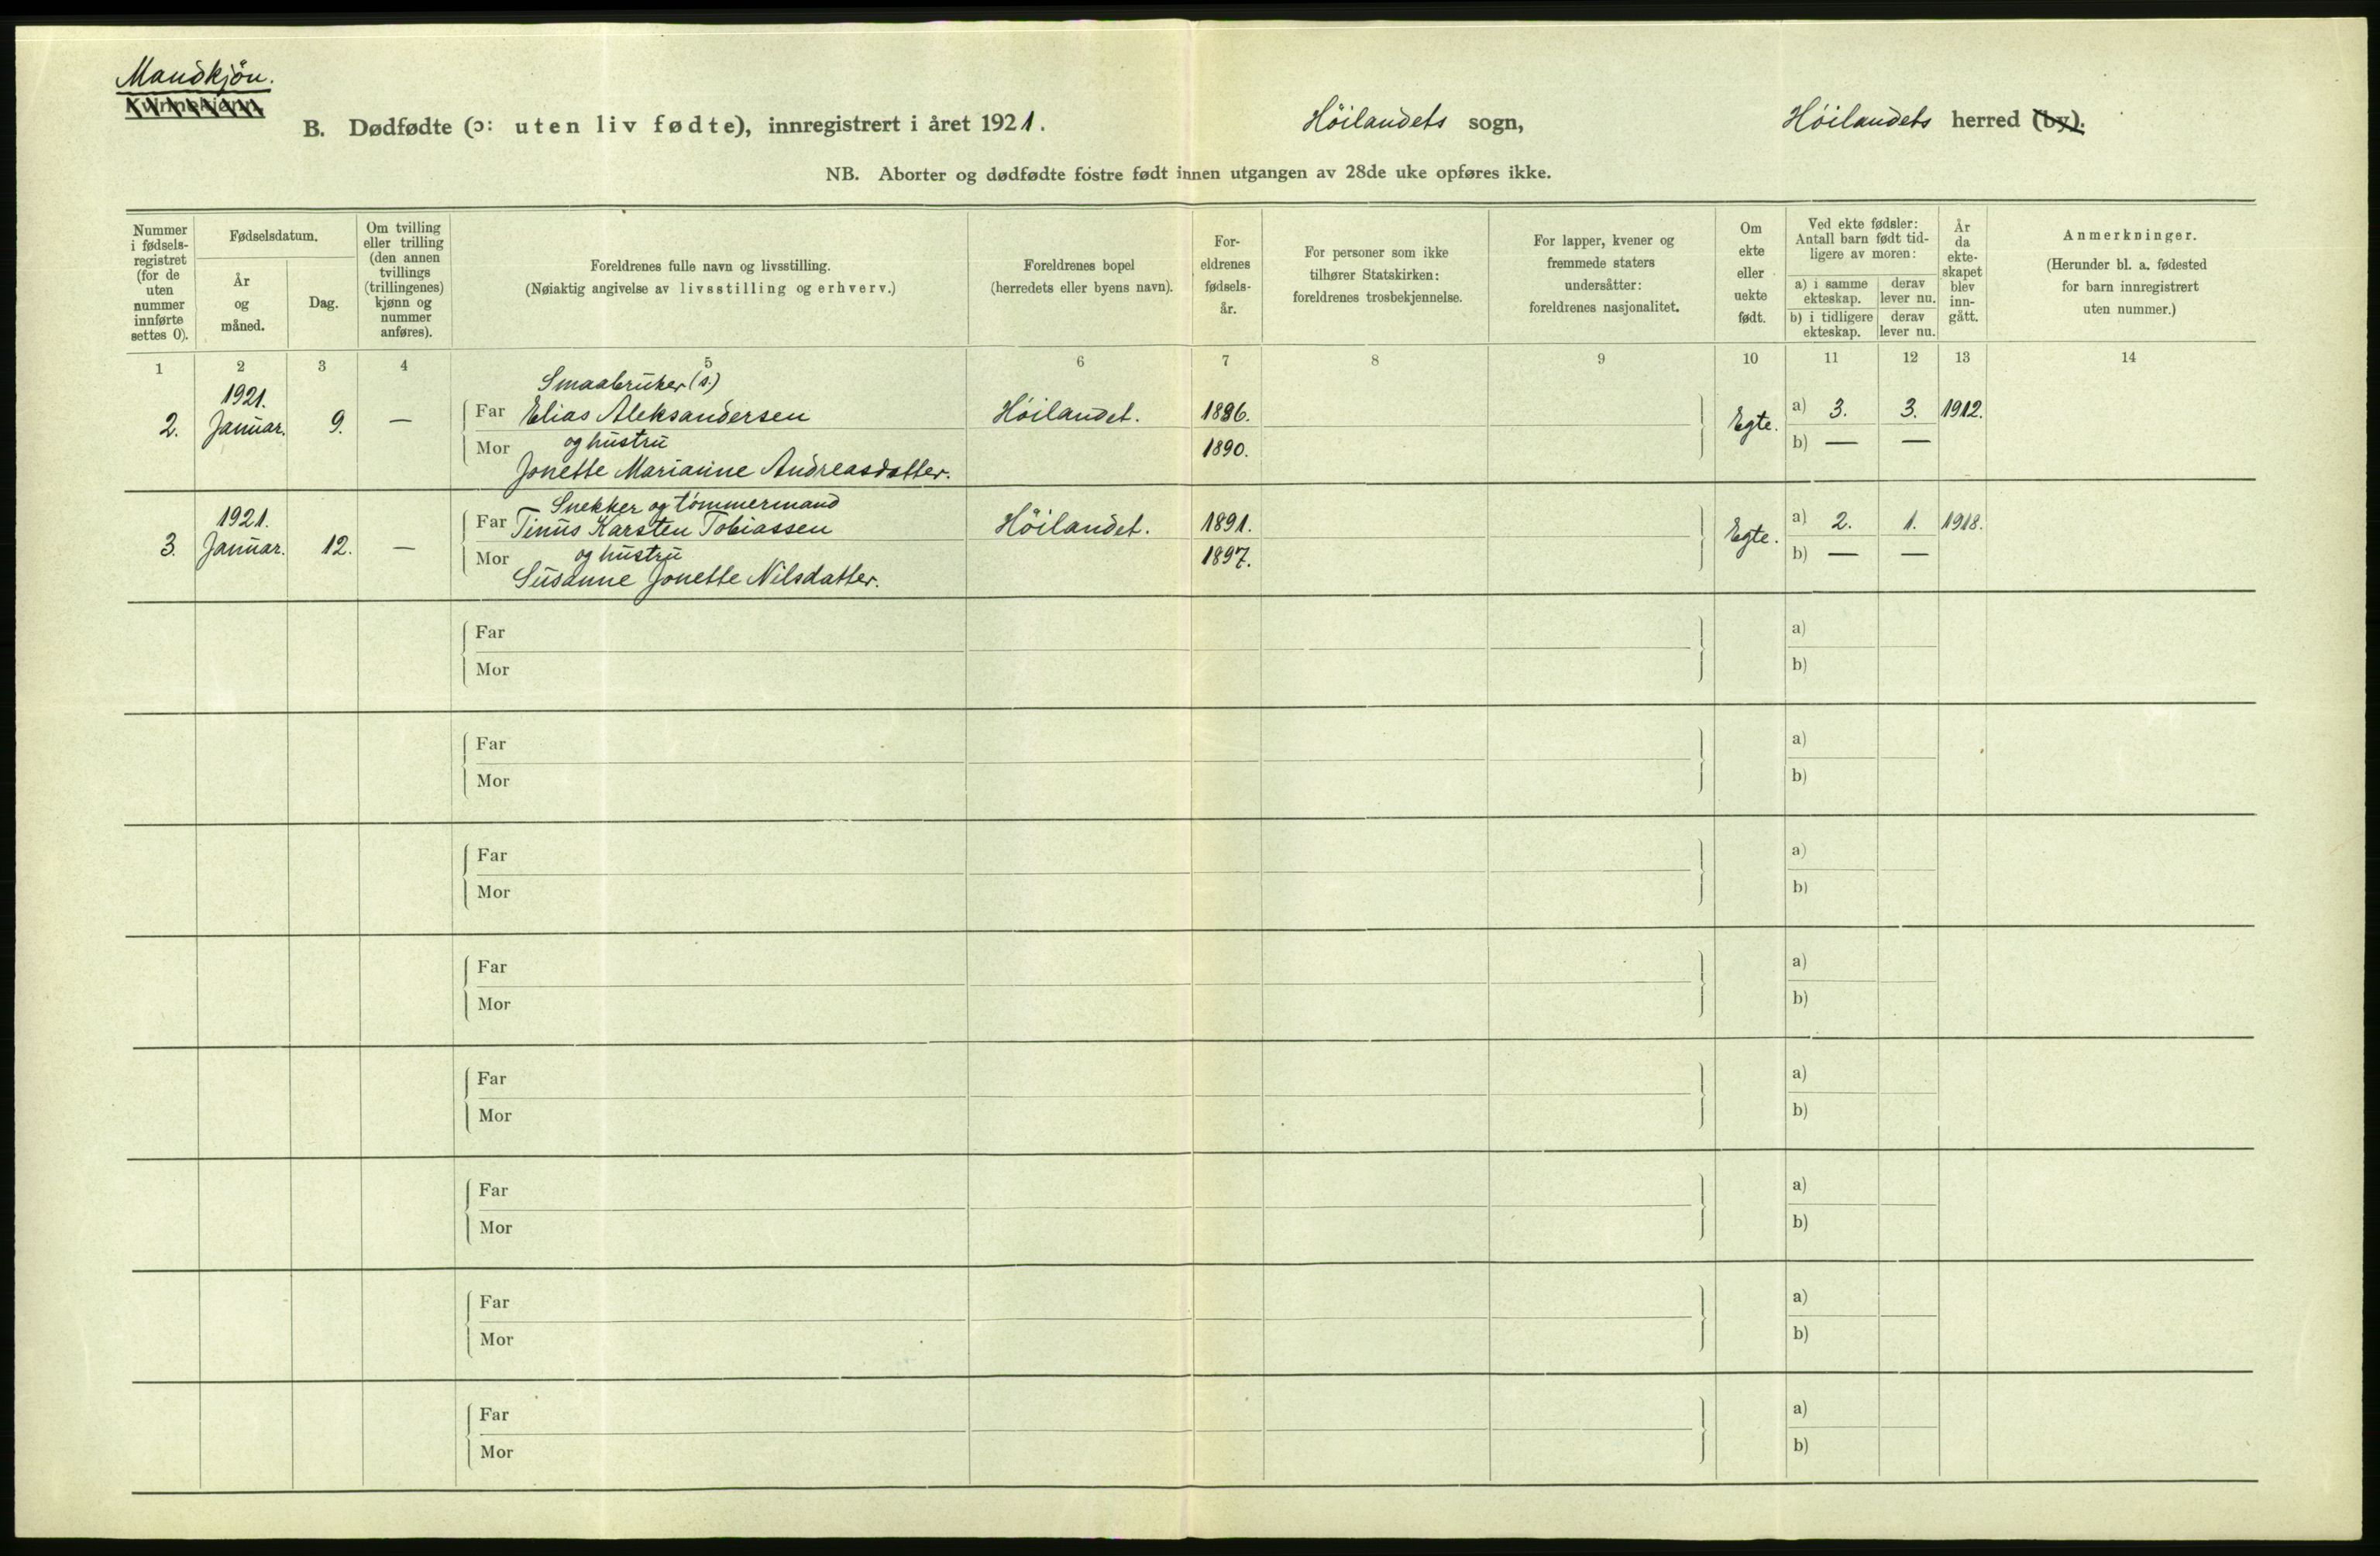 Mandkjön.
Kvinnekjønn.
B. Dødfødte (ɔ: uten liv fødte), innregistrert i året 1921. Höilandets sogn, Höilandets herred (by).
NB. Aborter og dødfødte fostre født innen utgangen av 28de uke opføres ikke.
Nummer i fødsels-registret (for de uten nummer innførte settes 0).
Fødselsdatum.
År og måned.
Dag.
Om tvilling eller trilling (den annen tvillings (trillingenes) kjønn og nummer anføres).
Foreldrenes fulle navn og livsstilling.
(Nøiaktig angivelse av livsstilling og erhverv.)
Foreldrenes bopel
(herredets eller byens navn).
For-eldrenes fødsels-år.
For personer som ikke tilhører Statskirken: foreldrenes trosbekjennelse.
For lapper, kvener og fremmede staters undersåtter: foreldrenes nasjonalitet.
Om ekte eller uekte født.
Ved ekte fødsler:
Antall barn født tid-ligere av moren:
a) i samme ekteskap.
derav lever nu.
b) i tidligere ekteskap.
derav lever nu.
År da ekte-skapet blev inn-gått.
Anmerkninger.
(Herunder bl. a. fødested for barn innregistrert uten nummer.)
1 2 3 4 5 6 7 8 9 10 11 12 13 14
Smaabruker (s.)
2. 1921. Januar. 9. — Far Elias Aleksandersen Höilandet. 1886. Egte. a) 3. 3. 1912.
Mor og hustru 1890. b) — —
Jonette Marianne Andreasdatter.
Snekker og tømmermand
3. 1921. Januar. 12. — Far Tinus Karsten Tobiassen Höilandet. 1891. Egte. a) 2. 1. 1918.
Mor og hustru 1897. b) — —
Susanne Jonette Nilsdatter.
Far a)
Mor b)
Far a)
Mor b)
Far a)
Mor b)
Far a)
Mor b)
Far a)
Mor b)
Far a)
Mor b)
Far a)
Mor b)
Far a)
Mor b)